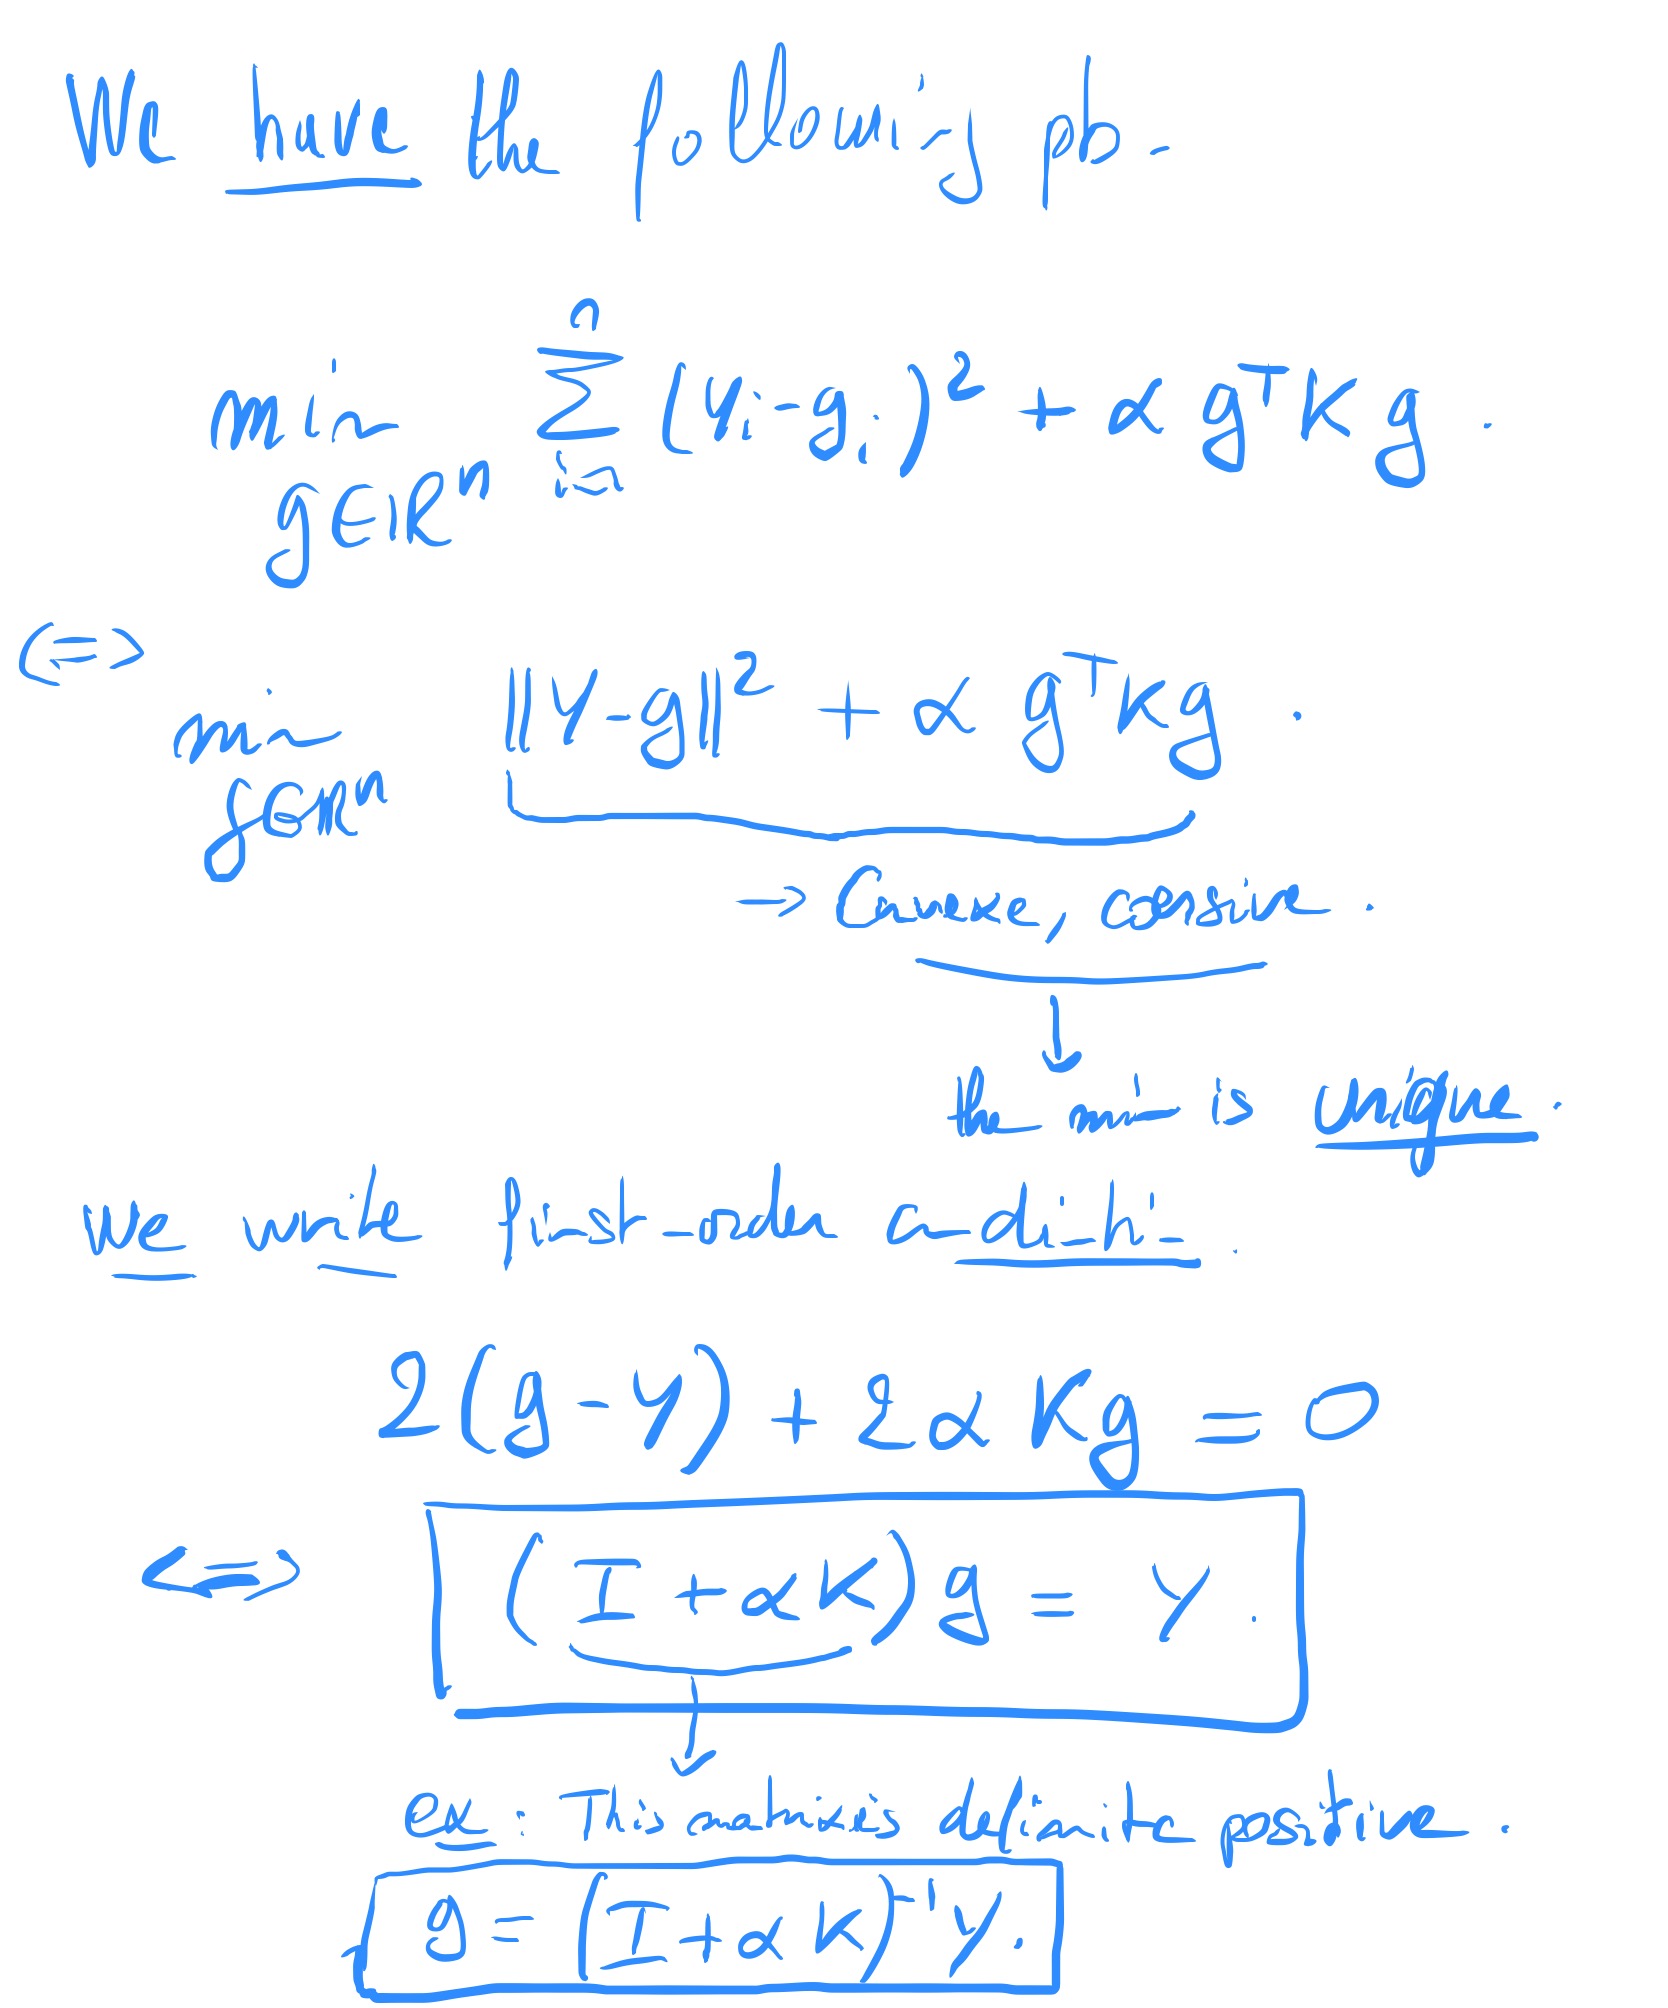 We have the following pb.
min g∈ℝⁿ ∑ i=1 n (Yi - gi)² + α gᵀKg.
(=>
min g∈ℝⁿ ||Y-g||² + α gᵀKg.
→ Convexe, coersive.
↓
the min is unique.
we write first-order condition.
2(g-Y) + 2αKg = 0
<=> (I + αK)g = Y.
↓
ex: This matrix is definite positive.
g = (I + αK)⁻¹Y.